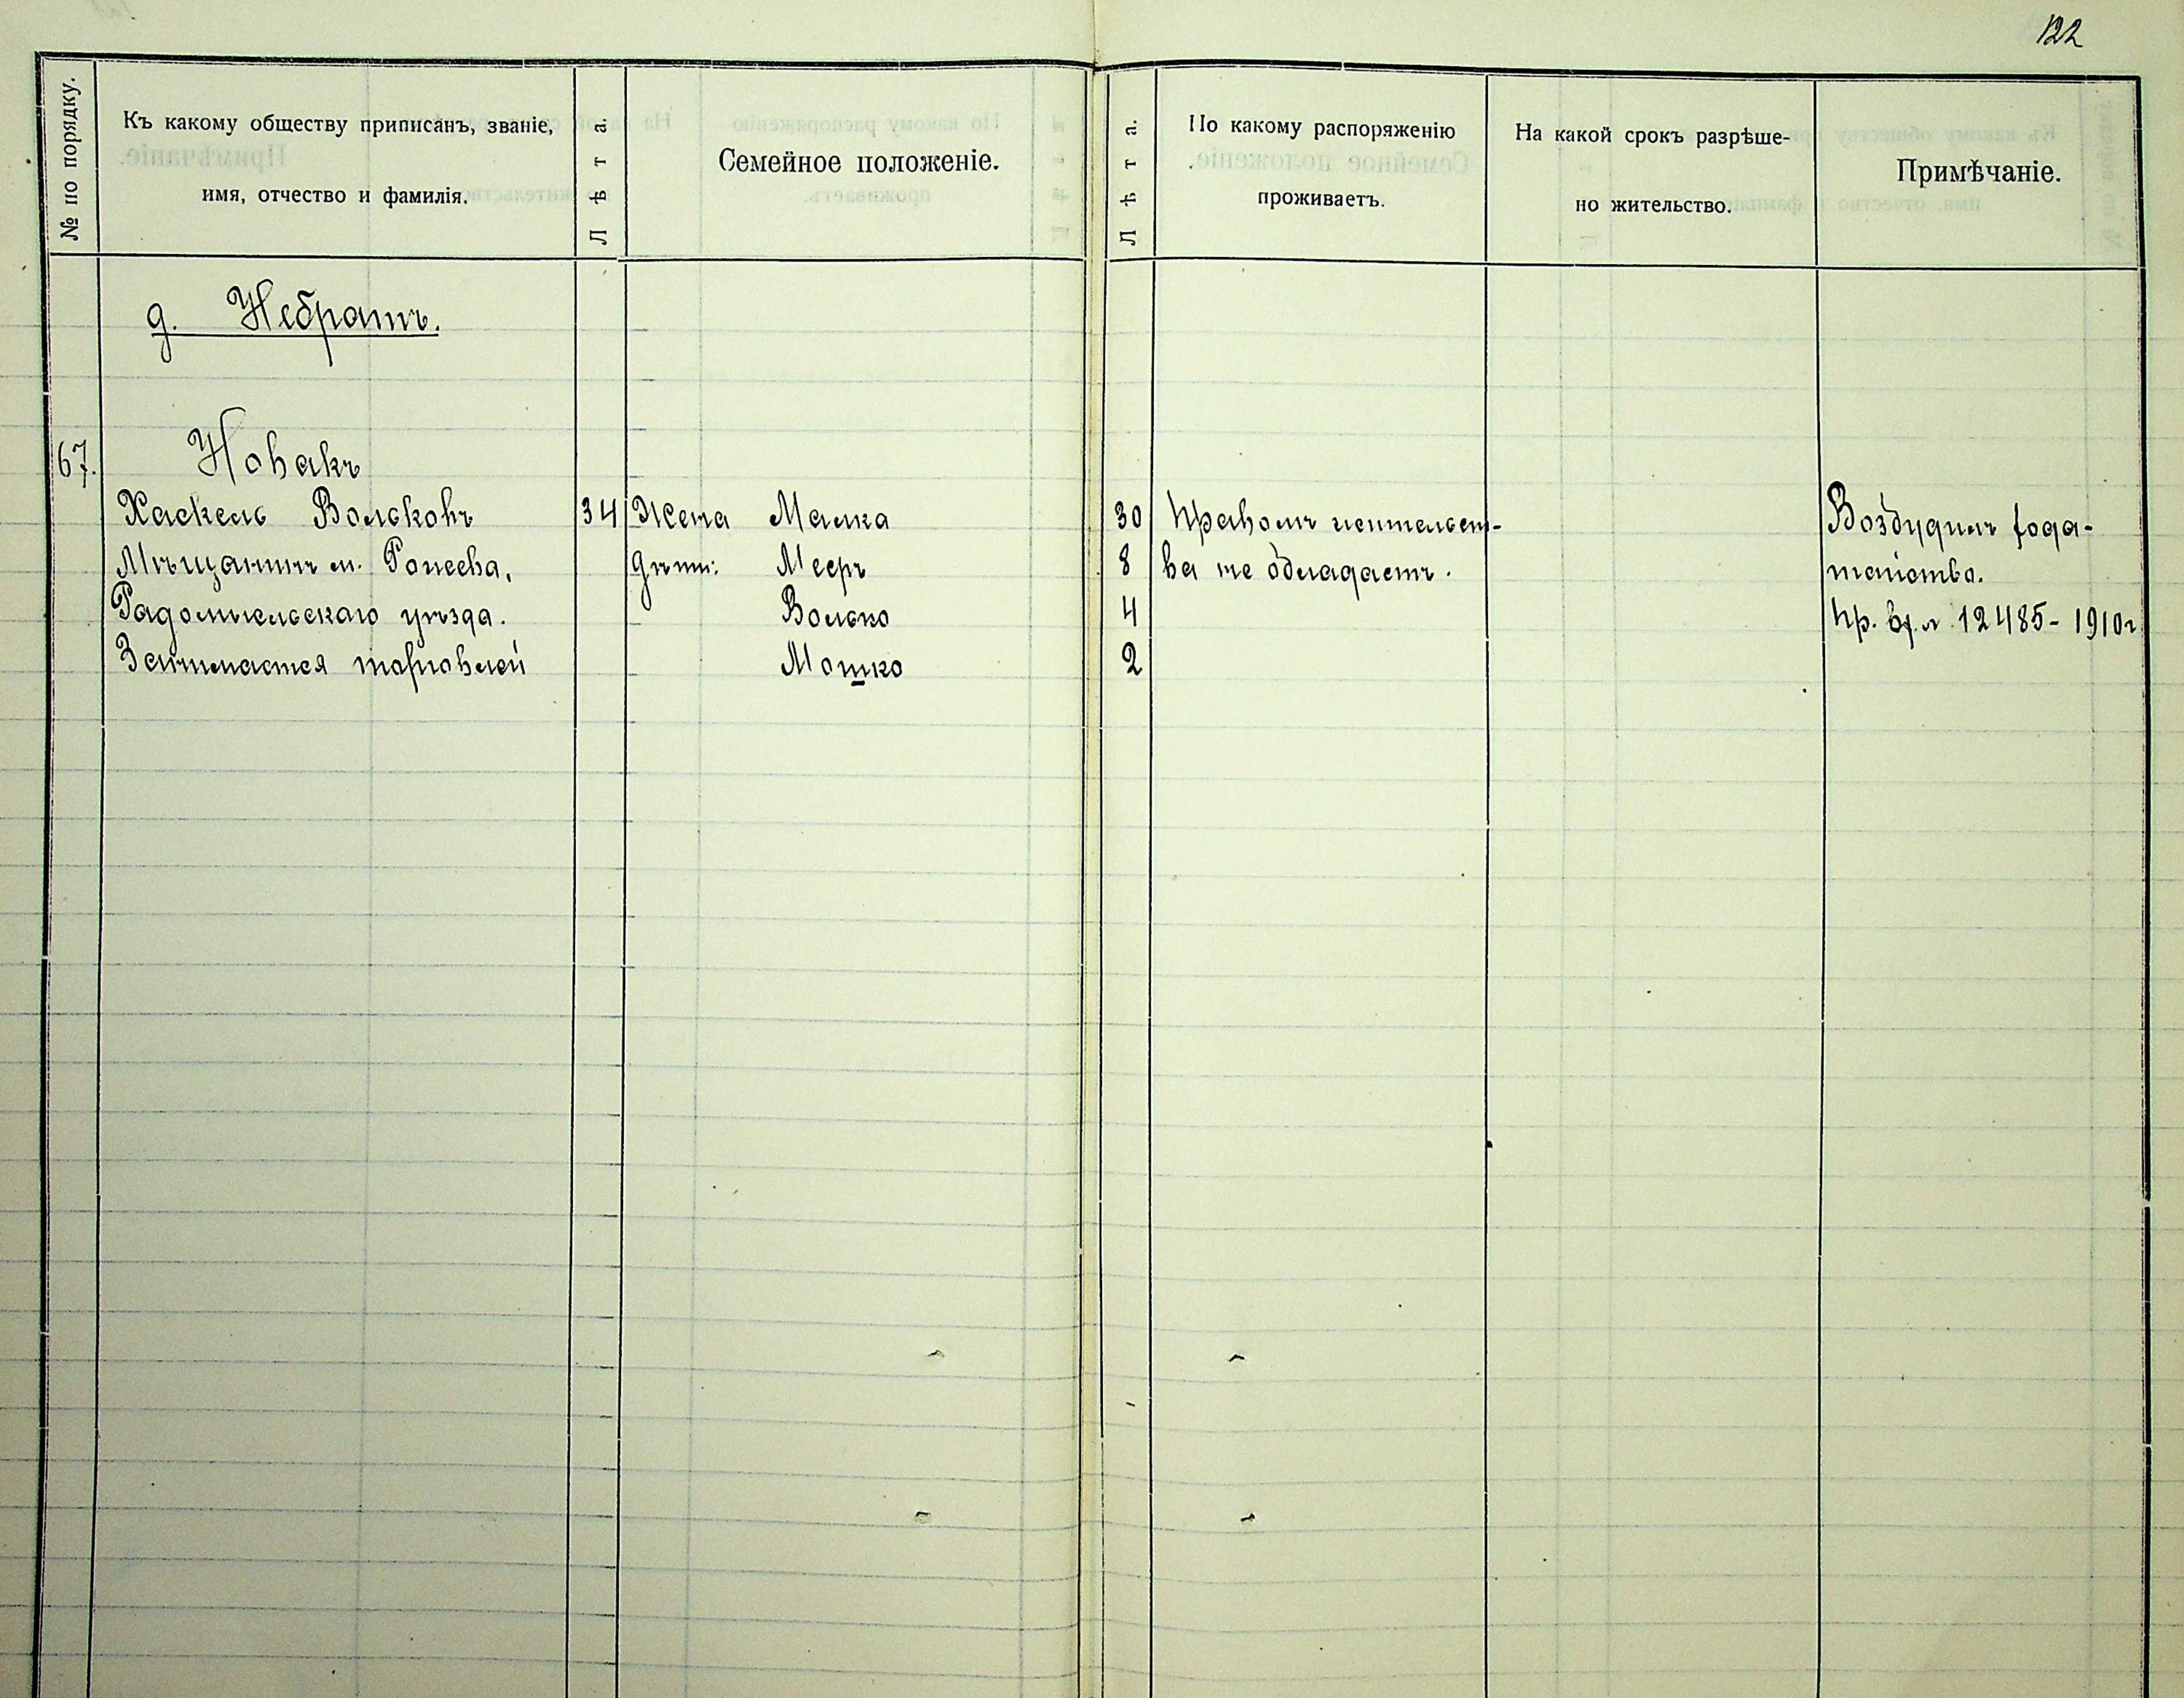 122
№ по порядку.
Къ какому обществу приписанъ, званіе,
имя, отчество и фамилія.
Лѣта.
Семейное положеніе.
Лѣта.
По какому распоряженію
проживаетъ.
На какой срокъ разрѣше-
но жительство.
Примѣчаніе.
д. Небратъ.
67. Новакъ
Хаскель Вольковъ 34 Жена Малка 30 Правомъ жительст- Возбудилъ хода-
Мѣщанинъ м. дѣти: Мееръ 8 ва не обладаетъ. тайство.
Радомысльскаго уѣзда. Волько 4 12485 - 1910 г.
Занимается торговлей Мошко 2